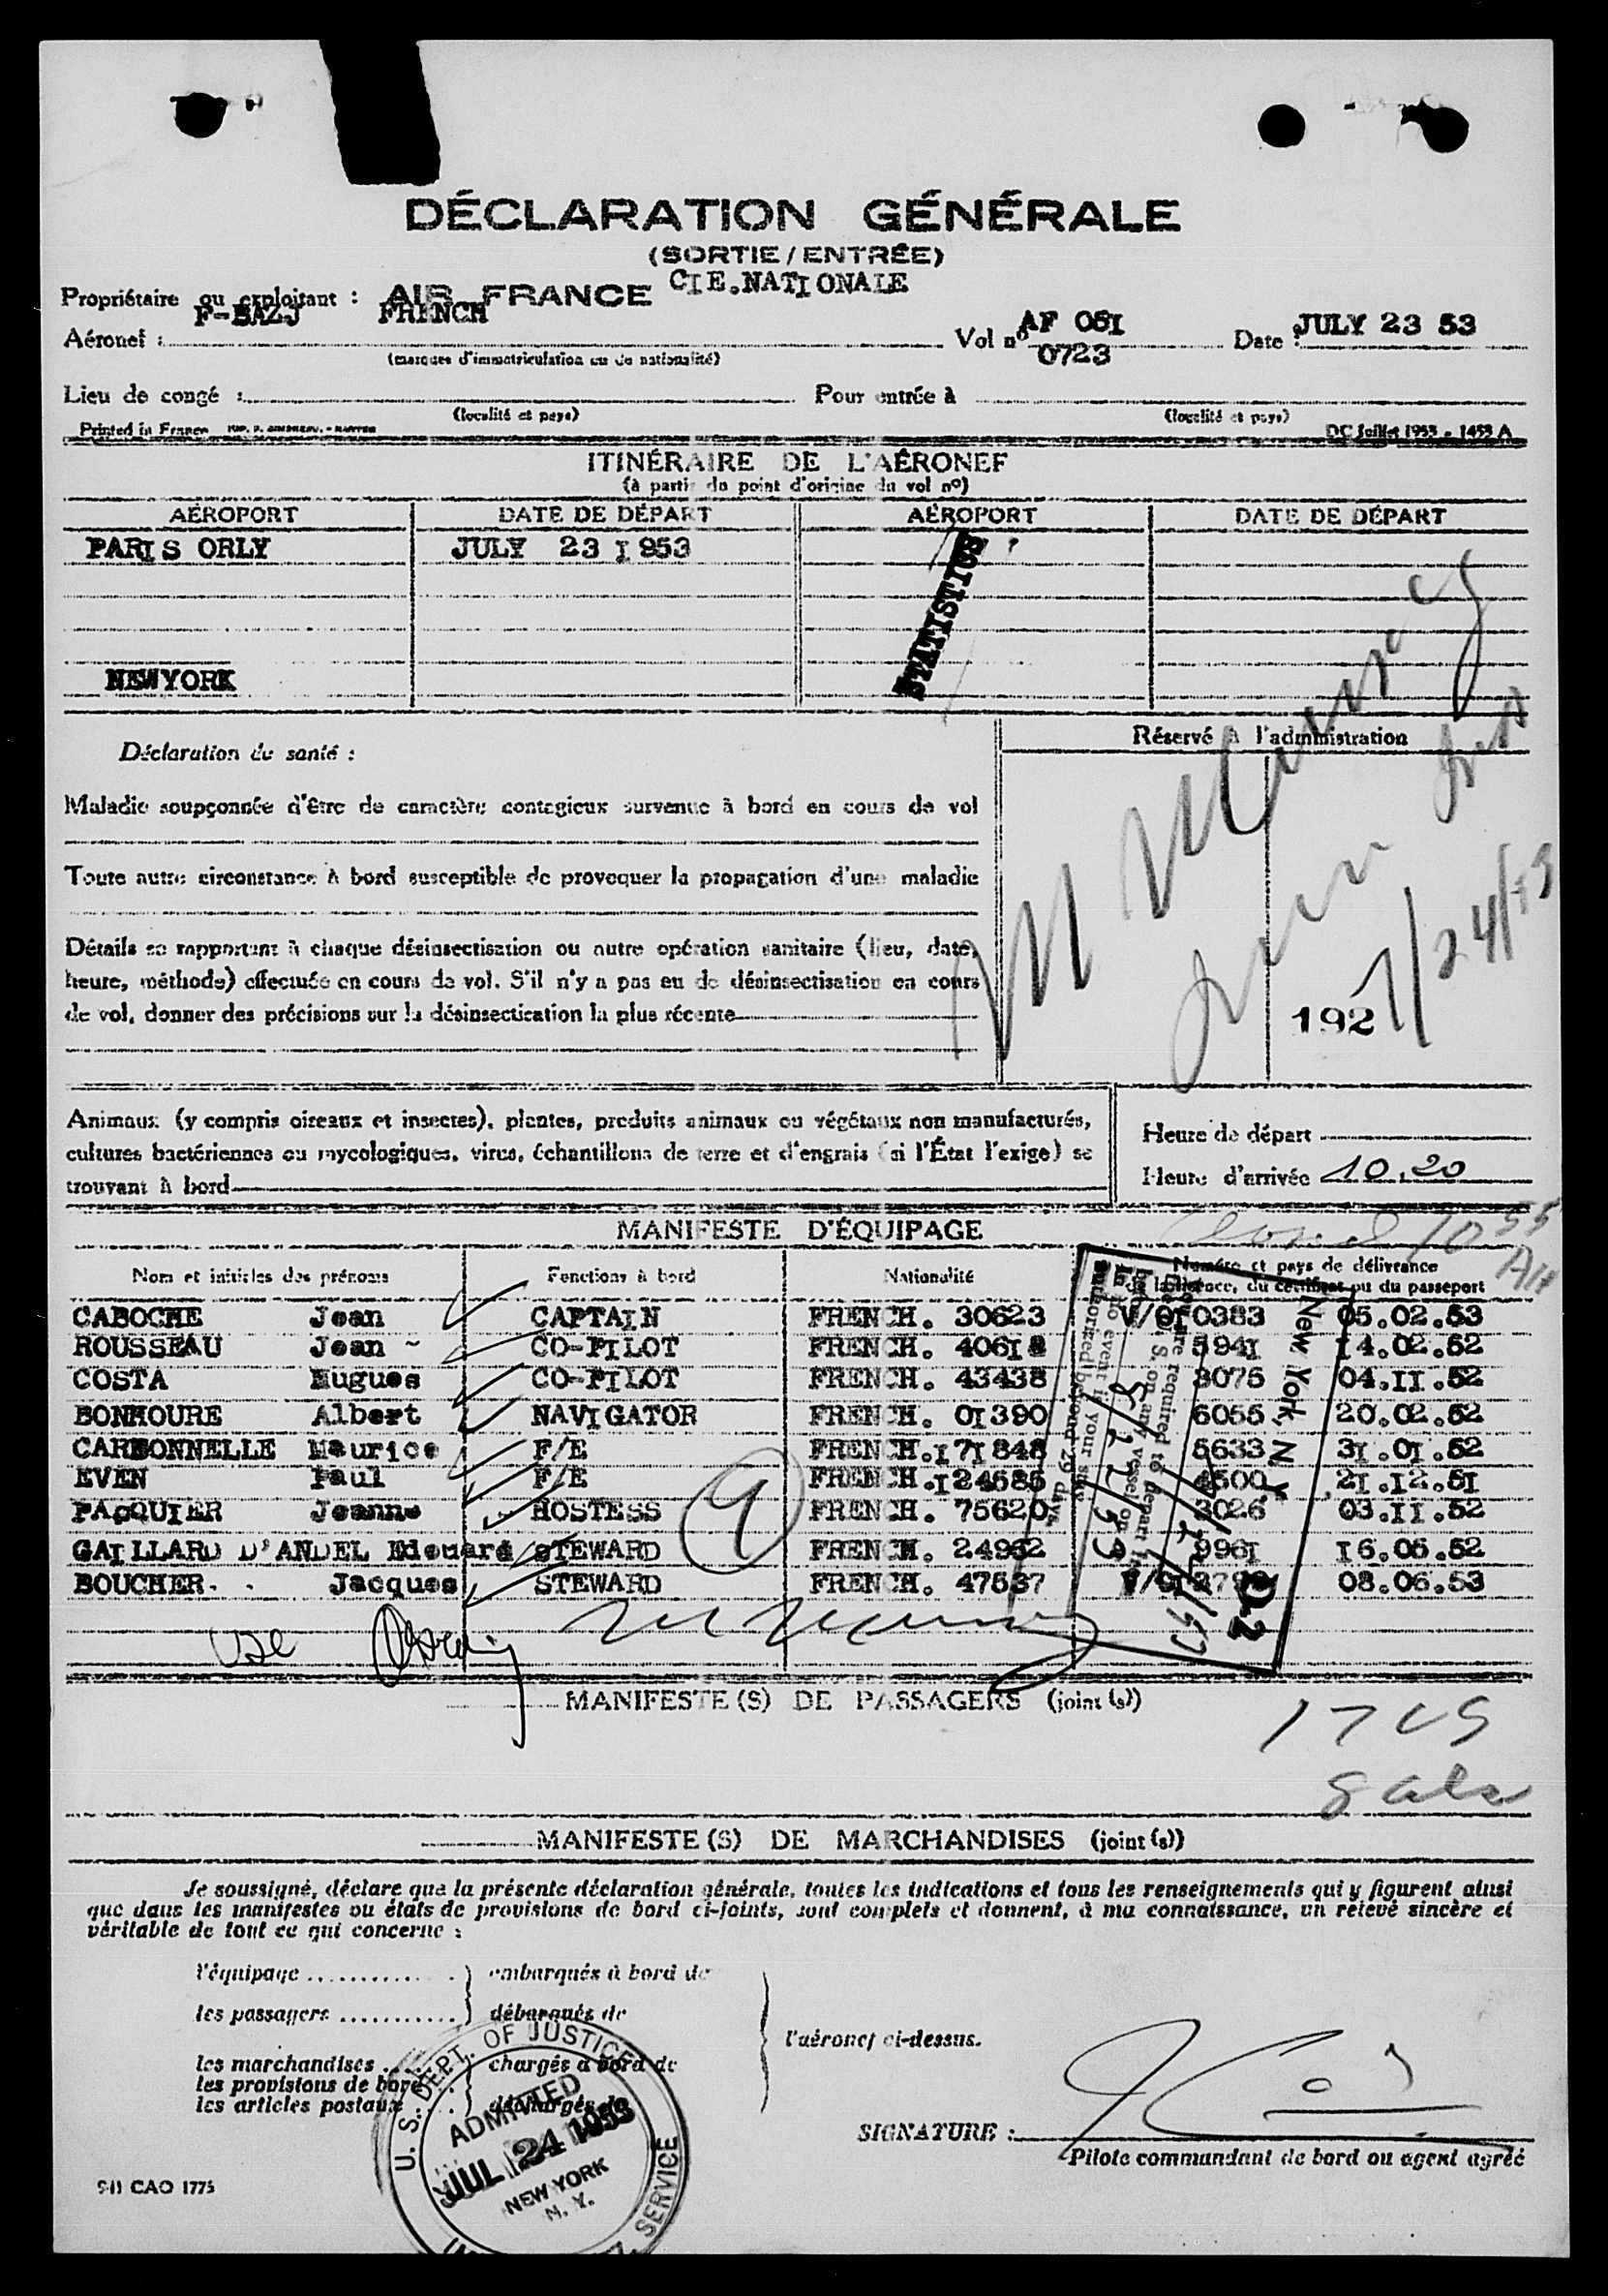 DÉCLARATION GÉNÉRALE
(SORTIE / ENTRÉE)
Propriétaire ou exploitant : AIR FRANCE CIE.NATIONALE
F-BAZJ FRENCH
Aéronef : Vol nº AF 05I Date : JULY 23 53
(marques d'immatriculation ou de nationalité) 0723
Lieu de congé : Pour entrée à
(localité et pays) (localité et pays)
Printed in France DC Juillet 1953 - 1453 A
ITINÉRAIRE DE L'AÉRONEF
(à partir du point d'origine du vol nº)
AÉROPORT DATE DE DÉPART AÉROPORT DATE DE DÉPART
PARIS ORLY JULY 23 I953
STATISTICS
NEWYORK
Réservé à l'administration
Déclaration de santé :
Maladie soupçonnée d'être de caractère contagieux survenue à bord en cours de vol
Toute autre circonstance à bord susceptible de provoquer la propagation d'une maladie
Détails se rapportant à chaque désinsectisation ou autre opération sanitaire (lieu, date,
heure, méthode) effectuée en cours de vol. S'il n'y a pas eu de désinsectisation en cours
de vol, donner des précisions sur la désinsectisation la plus récente
192
7/24/53
Animaux (y compris oiseaux et insectes), plantes, produits animaux ou végétaux non manufacturés,
cultures bactériennes ou mycologiques, virus, échantillons de terre et d'engrais (si l'État l'exige) se
trouvant à bord
Heure de départ
Heure d'arrivée 10.20
MANIFESTE D'ÉQUIPAGE
Nom et initiales des prénoms Fonctions à bord Nationalité Numéro et pays de délivrance
de la licence, du certificat ou du passeport
CABOCHE Jean CAPTAIN FRENCH. 30623 V/ 0383 05.02.53
ROUSSEAU Jean CO-PILOT FRENCH. 406I8 594I I4.02.52
COSTA Hugues CO-PILOT FRENCH. 43438 3075 04.II.52
BONHOURE Albert NAVIGATOR FRENCH. 0I390 6055 20.02.52
CARBONNELLE Maurice F/E FRENCH.I7I848 5633 3I.0I.52
EVEN Paul F/E FRENCH.I24585 4500 2I.I2.5I
PAQUIER Jeanne HOSTESS FRENCH. 75620 3026 03.II.52
GAILLARD D'ANDEL Edouard STEWARD FRENCH. 24962 996I I6.05.52
BOUCHER Jacques STEWARD FRENCH. 47537 08.06.53
9
New York N. Y.
D-2
MANIFESTE(S) DE PASSAGERS (joint (s))
gals
MANIFESTE(S) DE MARCHANDISES (joint (s))
Je soussigné, déclare que la présente déclaration générale, toutes les indications et tous les renseignements qui y figurent ainsi
que dans les manifestes ou états de provisions de bord ci-joints, sont complets et donnent, à ma connaissance, un relevé sincère et
véritable de tout ce qui concerne :
l'équipage embarqués à bord de
les passagers débarqués de
l'aéronef ci-dessus.
les marchandises chargés à bord de
les provisions de bord
les articles postaux déchargés de
U. S. DEPT. OF JUSTICE
ADMITTED
JUL 24 1953
NEW YORK
N. Y.
SERVICE
SIGNATURE :
Pilote commandant de bord ou agent agréé
S-11 CAO 1775